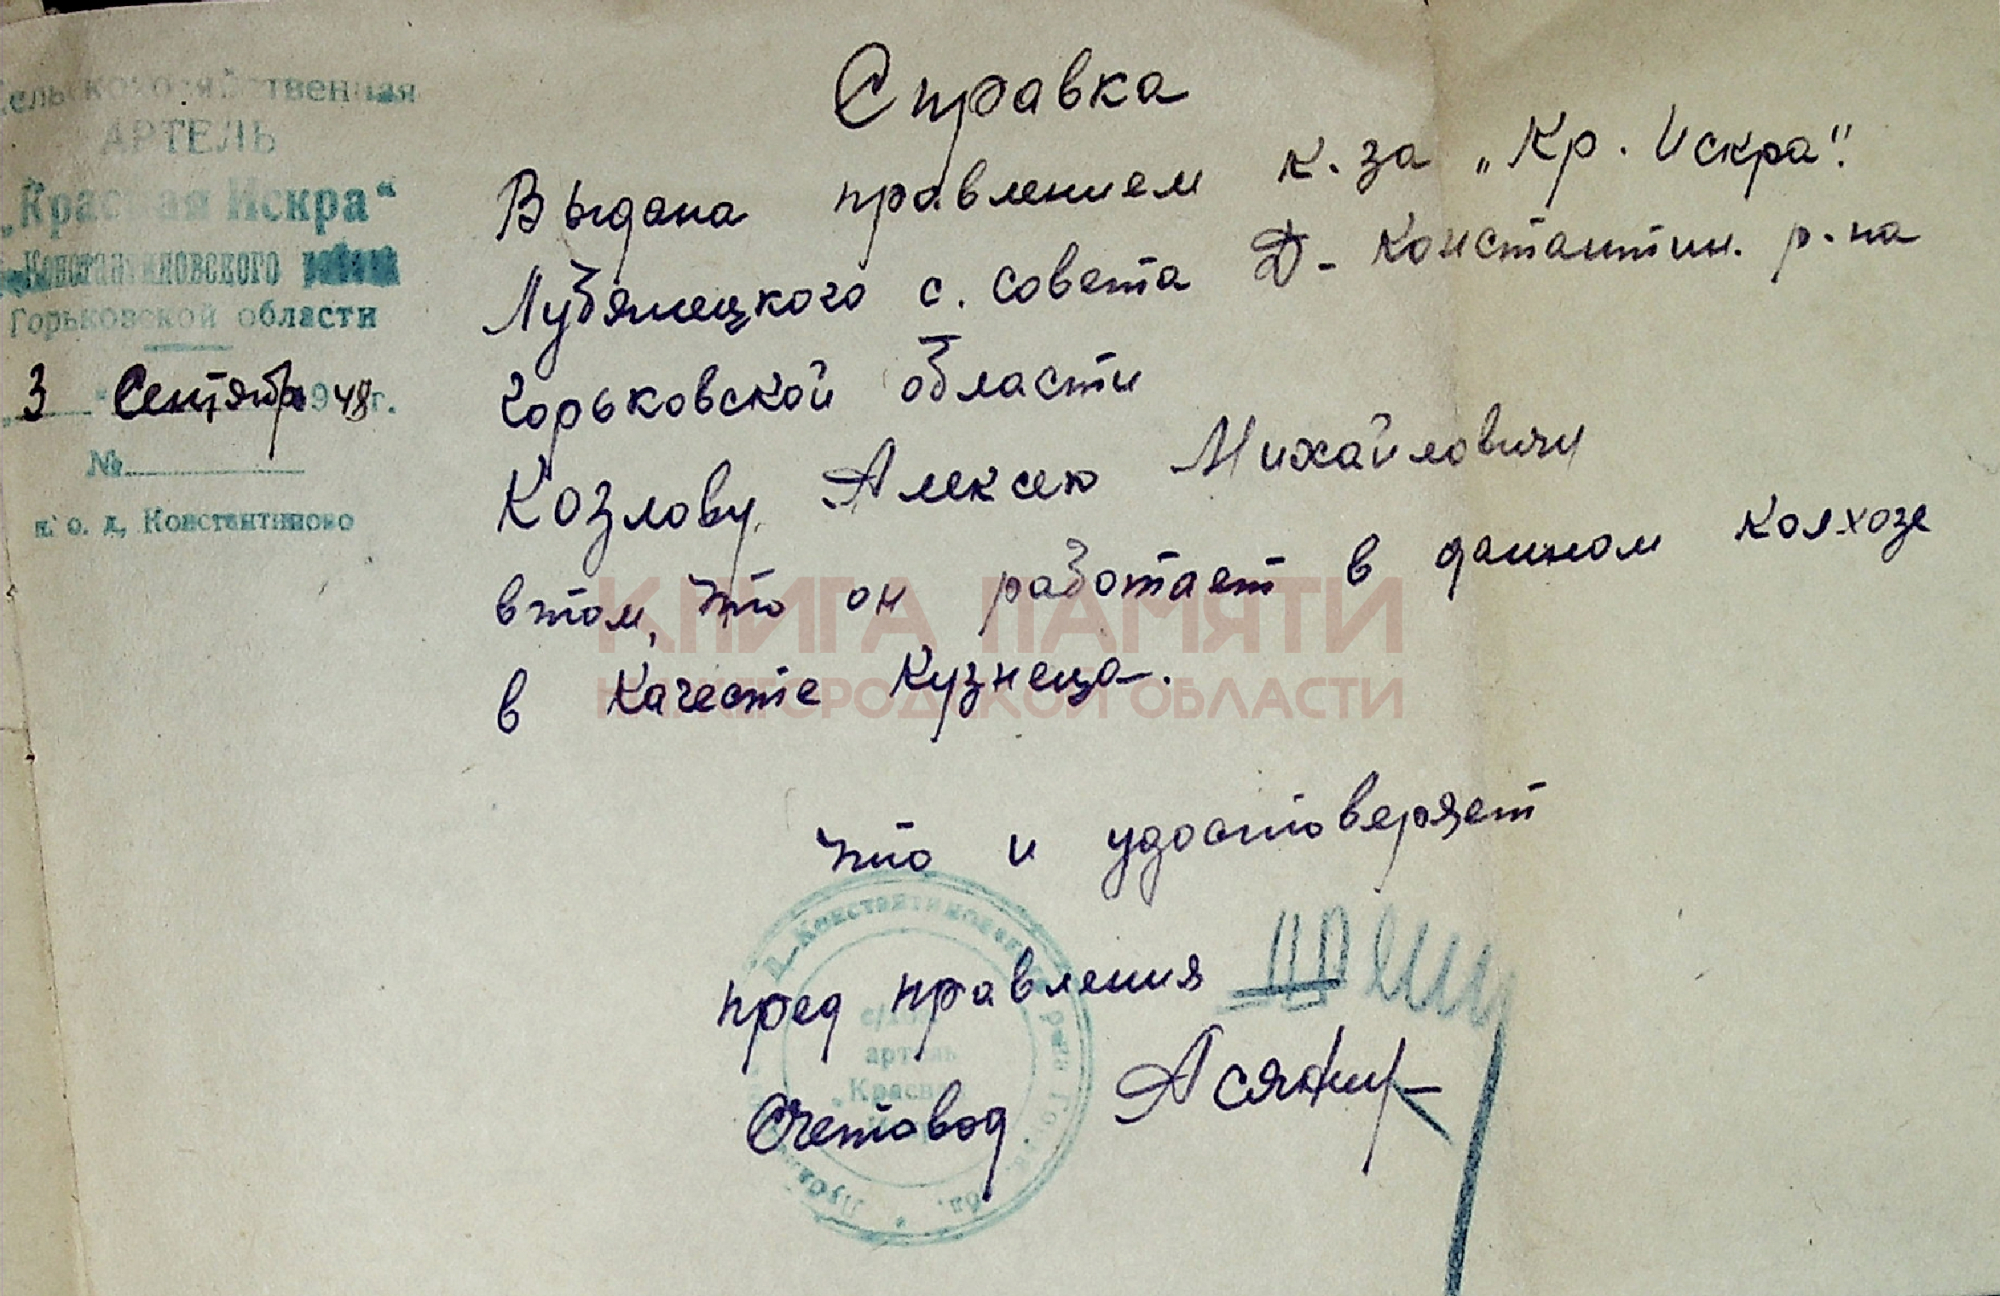 Сельскохозяйственная
АРТЕЛЬ
„Красная Искра“
Д-Константиновского района
Горьковской области
3 Сентября 1948 г.
№
п. о. Д, Константиново
Справка
Выдана правлением к.за „Кр. Искра“.
Лубянецкого с. совета Д-Константин. р-на
Горьковской области
Козлову Алексею Михайловичу
втом, что он работает в данном колхозе
в качесте Кузнеца.
Что и удостоверяет
пред правления
Счетовод
Д-Константиновский
с/хоз
артель
„Красная
КНИГА ПАМЯТИ
НИЖЕГОРОДСКОЙ ОБЛАСТИ